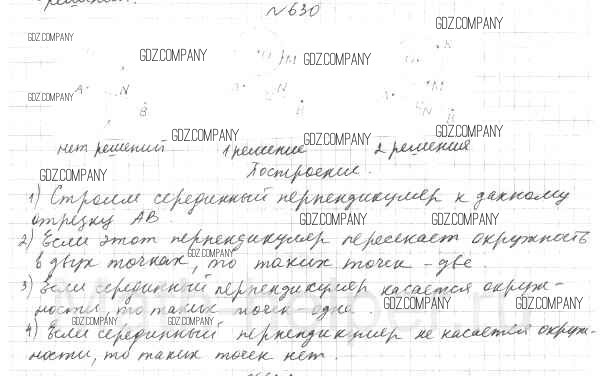 решений.
№630
GDZ.COMPANY
GDZ.COMPANY
GDZ.COMPANY GDZ.COMPANY
M K
A N M
GDZ.COMPANY A N A
B B N B
нет решений GDZ.COMPANY 1 решение GDZ.COMPANY 2 решения GDZ.COMPANY
GDZ.COMPANY Построение.
1) Строим серединный перпендикуляр к данному
отрезку AB. GDZ.COMPANY GDZ.COMPANY
2) Если этот перпендикуляр пересекает окружность
GDZ.COMPANY
в двух точках, то таких точек - две.
3) Если серединный перпендикуляр касается окруж-
ности то таких точек - одна. GDZ.COMPANY GDZ.COMPANY
GDZ.COMPANY GDZ.COMPANY
4) Если серединный перпендикуляр не касается окруж-
ности, то таких точек нет.